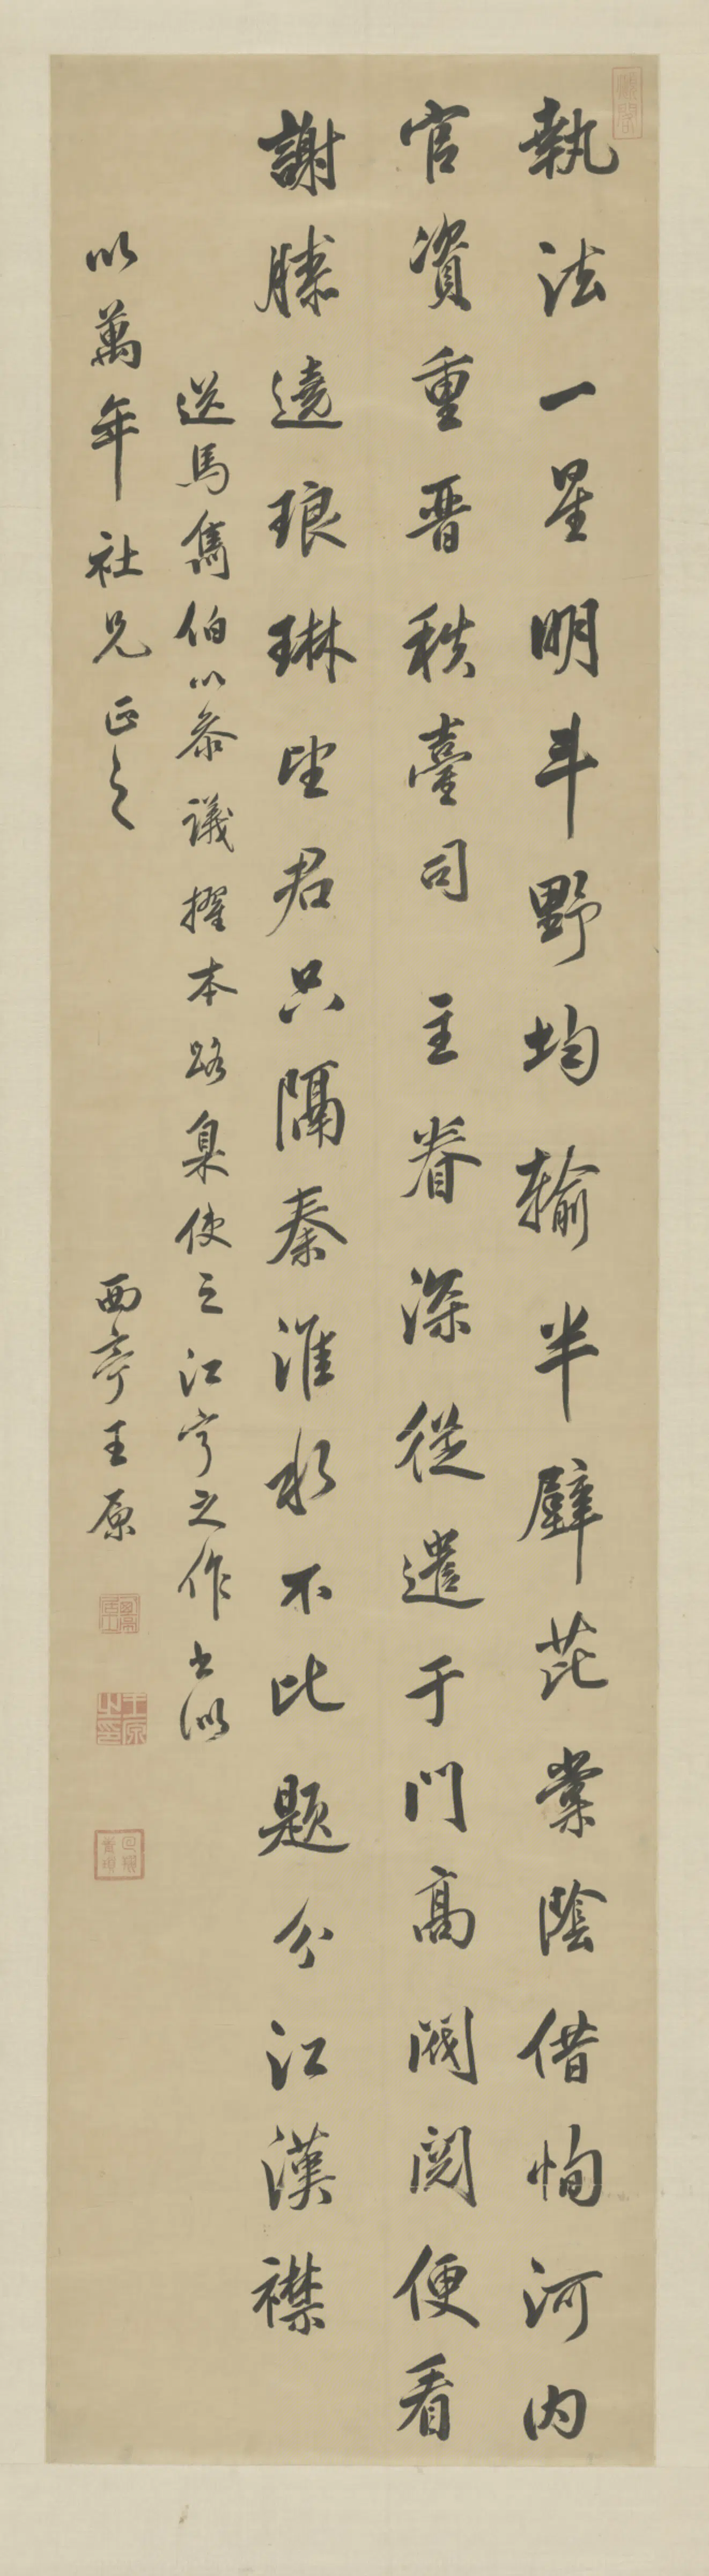 執法一星明斗野均輸半壁芘棠陰借恂河内
官資重晋秩臺司 主眷深從遣于門高閥閱便看
謝勝遶琅琳望君只隔秦淮水不比題分江漢襟
送馬雋伯以叅議擢本路臬使之江寧之作書似
以萬年社兄正之
西亭王原
王原之印